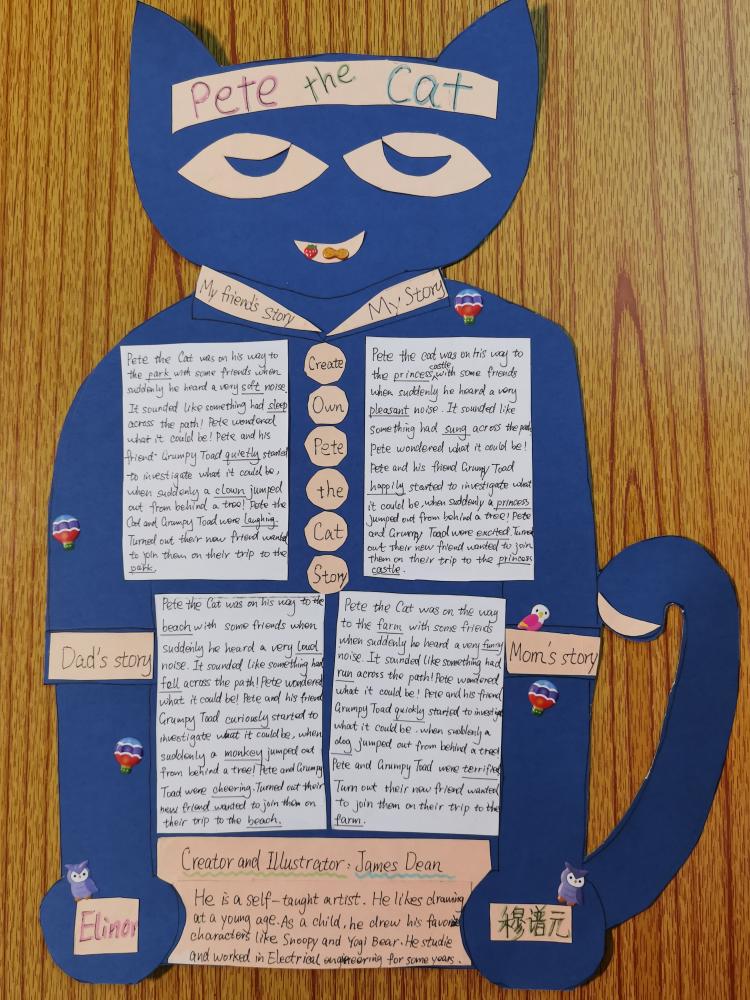 Pete the Cat
My friend's story
My Story
Pete the Cat was on his way to
the park with some friends when
suddenly he heard a very soft noise.
It sounded like something had sleep
across the path! Pete wondered
what it could be! Pete and his
friend Grumpy Toad quietly started
to investigate what it could be,
when suddenly a clown jumped
out from behind a tree! Pete the
Cat and Grumpy Toad were laughing.
Turned out their new friend wanted
to join them on their trip to the
park.
Create
Own
Pete
the
Cat
Story
Pete the cat was on his way to
the princess castle with some friends
when suddenly he heard a very
pleasant noise. It sounded like
something had sung across the path
Pete wondered what it could be!
Pete and his friend Grumy Toad
happily started to investigate what
it could be, when suddenly a princess
jumped out from behind a tree! Pete
and Grumpy Toad were excited. Turned
out their new friend wanted to join
them on their trip to the princess
castle.
Dad's story
Pete the Cat was on his way to the
beach with some friends when
suddenly he heard a very loud
noise. It sounded like something had
fell across the path! Pete wondered
what it could be! Pete and his friend
Grumpy Toad curiously started to
investigate what it could be, when
suddenly a monkey jumped out
from behind a tree! Pete and Grumpy
Toad were cheering. Turned out their
new friend wanted to join them on
their trip to the beach.
Mom's story
Pete the Cat was on the way
to the farm with some friends
when suddenly he heard a very funny
noise. It sounded like something had
run across the path! Pete wondered
what it could be! Pete and his friend
Grumpy Toad quickly started to investigate
what it could be. when suddenly a
dog jumped out from behind a tree!
Pete and Grumpy Toad were terrified
Turn out their new friend wanted
to join them on their trip to the
farm.
Creator and Illustrator: James Dean
He is a self-taught artist. He likes drawing
at a young age. As a child, he drew his favorite
characters like Snoopy and Yogi Bear. He studie
and worked in Electrical engineering for some years.
Elinor
穆谱元